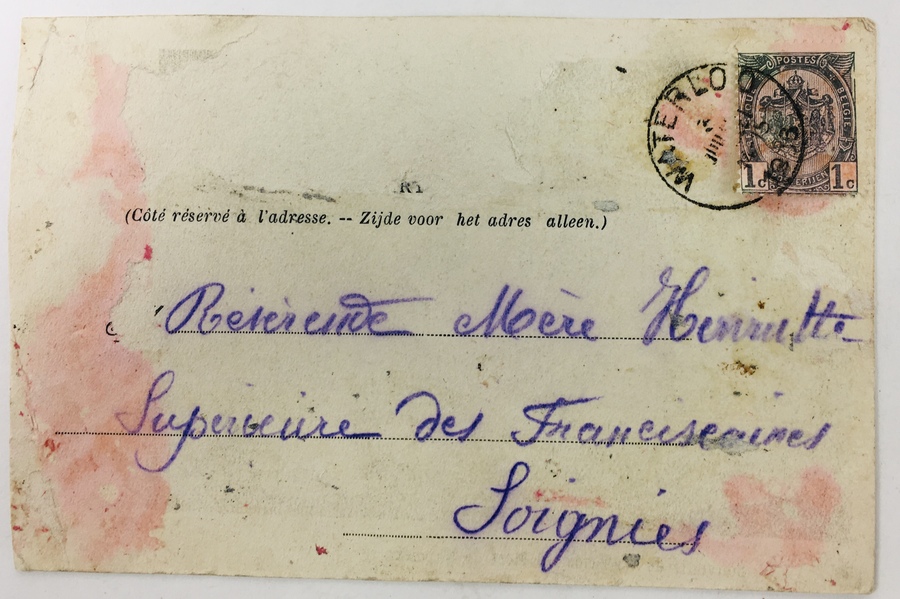 POSTES
BELGIQUE BELGIE
1c 1c
WATERLOO
RT
(Côté réservé à l'adresse. -- Zijde voor het adres alleen.)
Révérende Mère Henriette
Supérieure des Franciscaines
Soignies